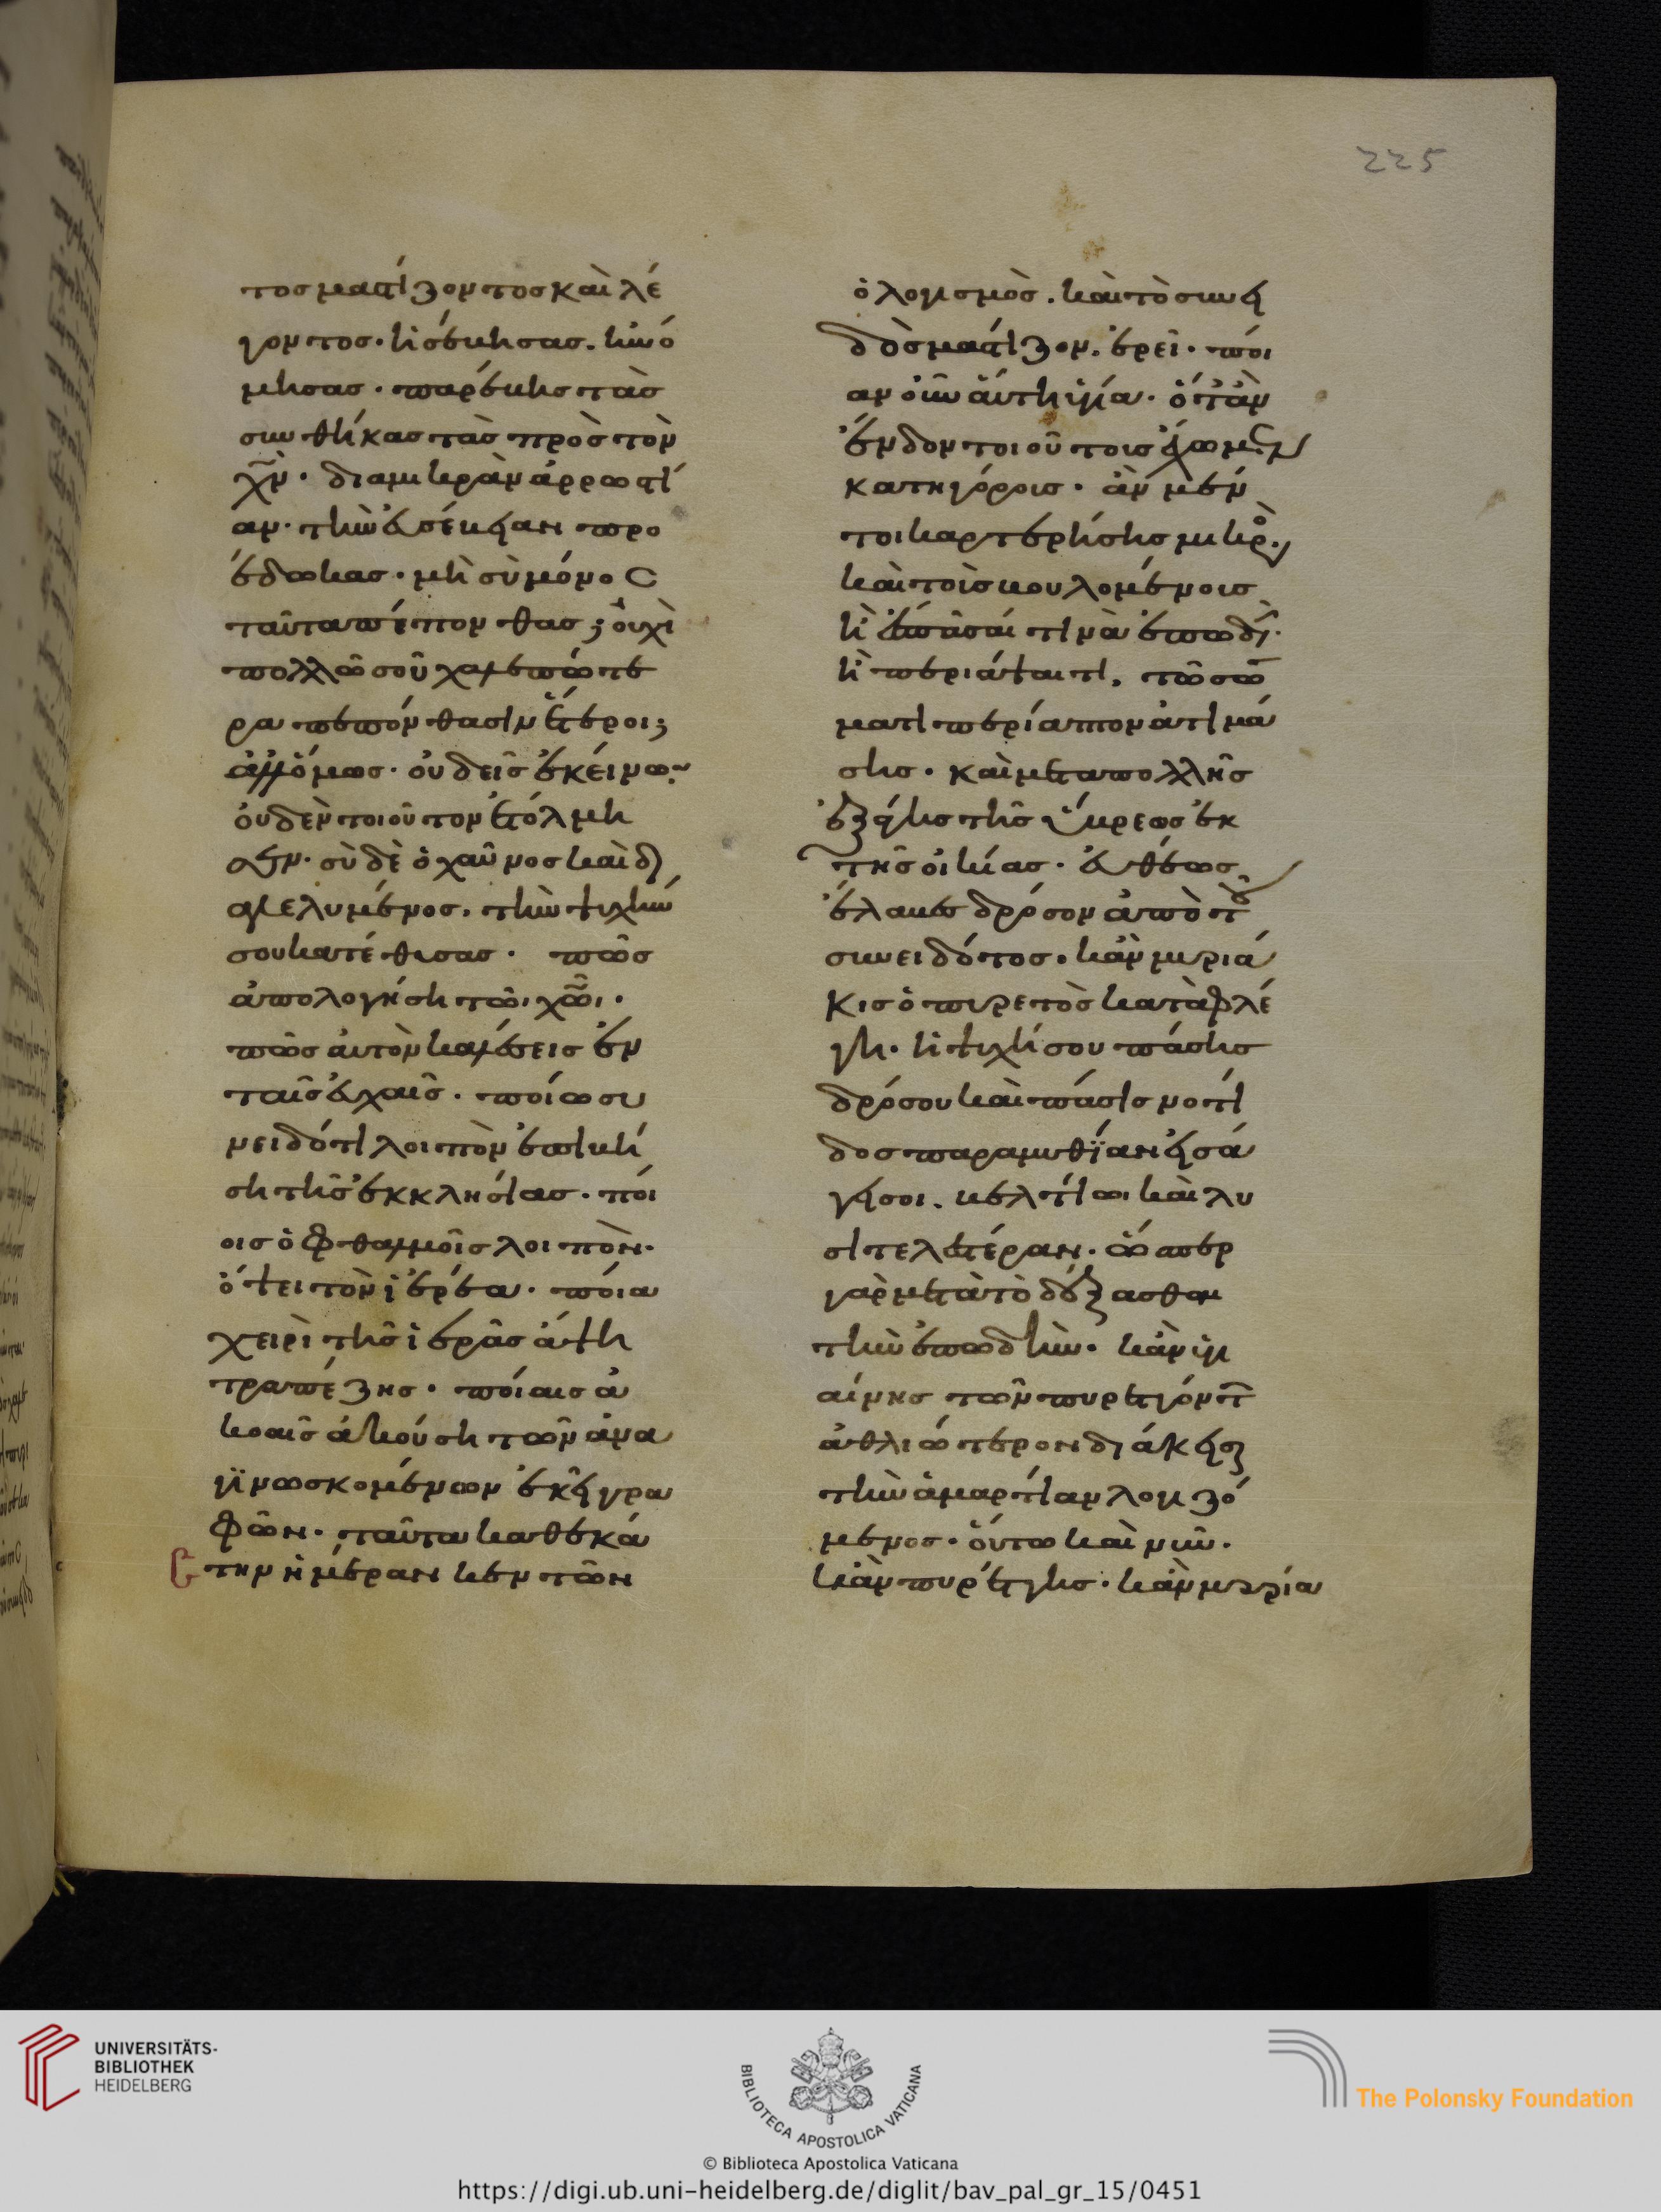 225
τος μαστίζοντος καὶ λέ
γοντος· ἠσέβησας. ἠνό
μησας· παρέβης τὰς
συνθήκας τὰς πρὸς τὸν
χ̅ν̅· διὰ μικρὰν ἀρρωστί
αν· τὴν εὐσέβειαν προ
έδωκας· μὴ σὺ μόνος
ταῦτα πέπονθας; οὐχὶ
πολλῶ σοῦ χαλεπώτε
ρα πεπόνθασιν ἕτεροι;
ἀλλ' ὅμως· οὐδεὶς ἐκείνων
οὐδὲν τοιοῦτον ἐτόλμη
σεν· σὺ δὲ ὁ χαῦνος καὶ δι
αλελυμένος. τὴν ψυχήν
σου κατέθυσας· πῶς
ἀπολογήση τῶι χ̅ω̅ι·
πῶς αὐτὸν καλέσεις ἐν
ταῖς εὐχαῖς· ποίω συ
νειδότι λοιπὸν ἐπιβή
ση τῆς ἐκκλησίας· ποί
οις ὀφθαλμοῖς λοιπὸν·
ὄψει τὸν ἱερέα· ποία
χειρὶ τῆς ἱερᾶς ἅψη
τραπέζης· ποίαις ἀ
κοαῖς ἀκούση τῶν ἀνα
γϊνωσκομένων ἐκεῖ γρα
φῶν· ταῦτα καθεκά
την ἡμέραν κεντῶν
ὁ λογισμὸς. καὶ τὸ συνει
δὸς μαστίζον. ἐρεῖ· ποί
αν οὖν αὕτη ὑγία· ὅταν
ἔνδον τοιούτοις ἔχωμεν
κατηγόροις· ἂν μέν
τοι καρτερήσης μικρὸν
καὶ τοῖς βουλομένοις
ἢ ἐπᾶσαί τινα ἐπωδὴν·
ἢ περιάψαι τι, τῶ σώ
ματι περίαπτον ἀτιμά
σης· καὶ μετὰ πολλῆς
ἐξείης τῆς ὕβρεως ἐκ
τῆς οἰκίας· εὐθέως
ἔλαβες δρόσον ἀπὸ τοῦ
συνειδότος. κἂν μυριά
κις ὁ πυρετὸς καταφλέ
γη· ἡ ψυχή σου πάσης
δρόσου καὶ πάσης νοτί
δος παραμυθΐαν εἰσά
γει σοι. βελτίω καὶ λυ
σιτελεστέραν· ὥσπερ
γὰρ μετὰ τὸ δέξασθαι
τὴν ἐπωδὴν· κἂν ὑγι
αίνης τῶν πυρεττόντων
ἀθλιώτερον διάκεισαι
τὴν ἁμαρτίαν λογιζό
μενος· οὕτω καὶ νῦν·
κἂν πυρέττης· κἂν μυρία
UNIVERSITÄTS-
BIBLIOTHEK
HEIDELBERG
BIBLIOTECA APOSTOLICA VATICANA
The Polonsky Foundation
© Biblioteca Apostolica Vaticana
https://digi.ub.uni-heidelberg.de/diglit/bav_pal_gr_15/0451